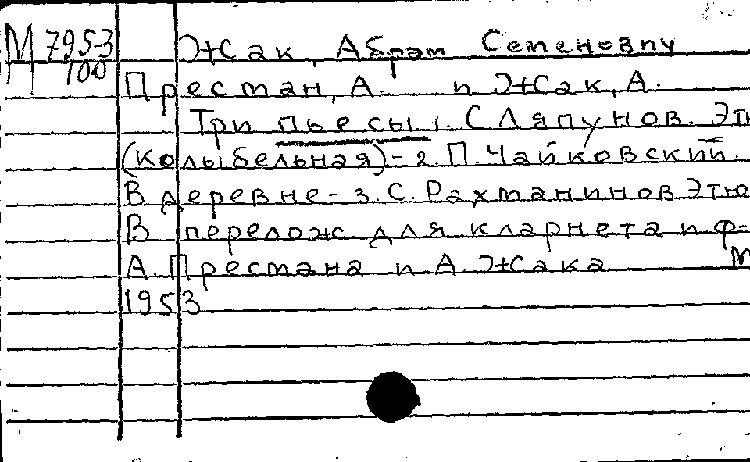 М 795-3 Жак, Абрам Семеновпу
100
Престан, А. и Жак, А.
Три пьесы 1. С Ляпунов. Этю
(колыбельная) - 2. П. Чайковский.
В деревне - 3. С. Рахманинов Этю
В перелож для кларнета и ф-
А. Престана и А. Жака М
1953